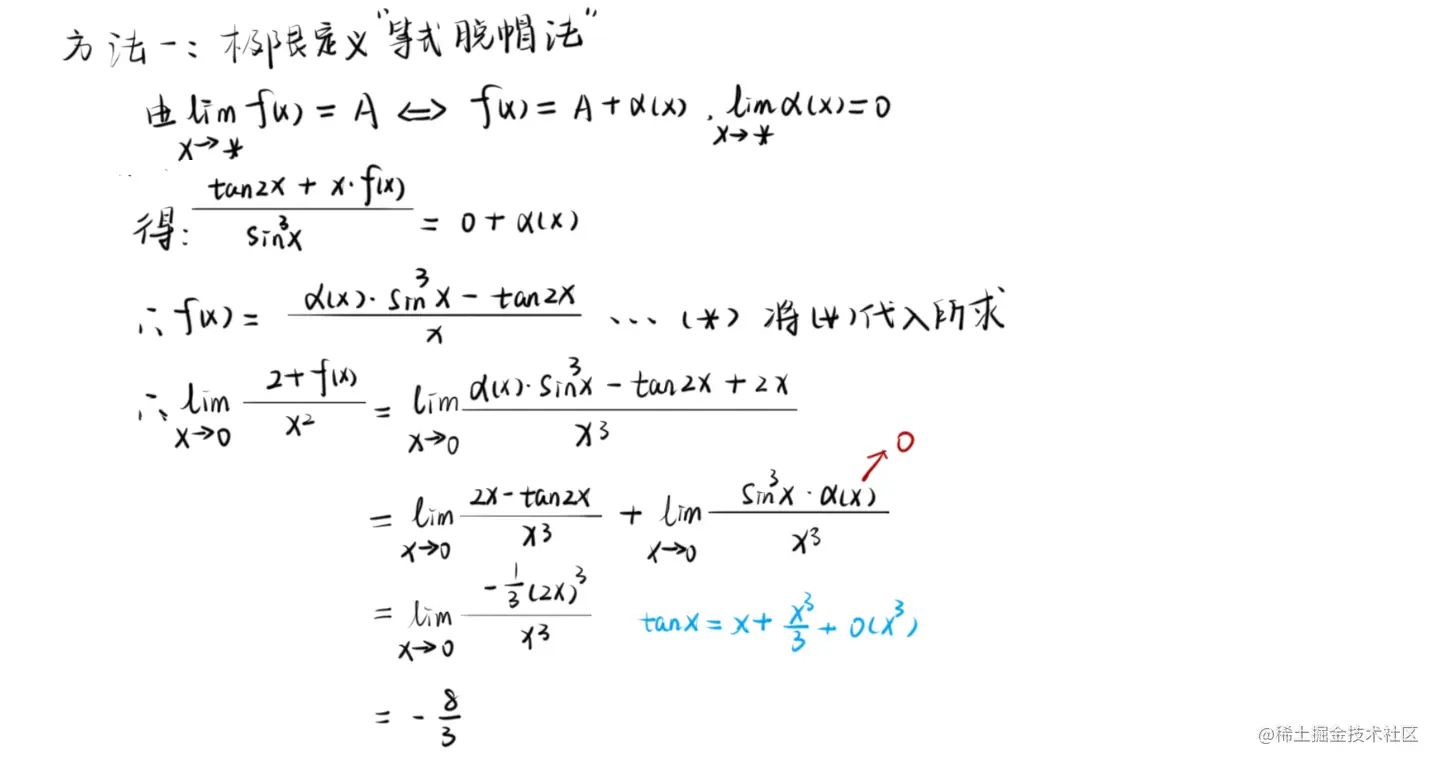 方法一：极限定义"等式脱帽法"
由 lim_{x→*} f(x) = A ⇔ f(x) = A + α(x) . lim_{x→*} α(x) = 0
得: (tan2x + x·f(x)) / sin³x = 0 + α(x)
∴ f(x) = (α(x)·sin³x − tan2x) / x ···（*）将(*)代入所求
∴ lim_{x→0} (2+f(x)) / x² = lim_{x→0} (α(x)·sin³x − tan2x + 2x) / x³
= lim_{x→0} (2x − tan2x) / x³ + lim_{x→0} (sin³x · α(x)) / x³ ↗ 0
= lim_{x→0} (−1/3 (2x)³) / x³ tanx = x + x³/3 + o(x³)
= − 8/3
@稀土掘金技术社区